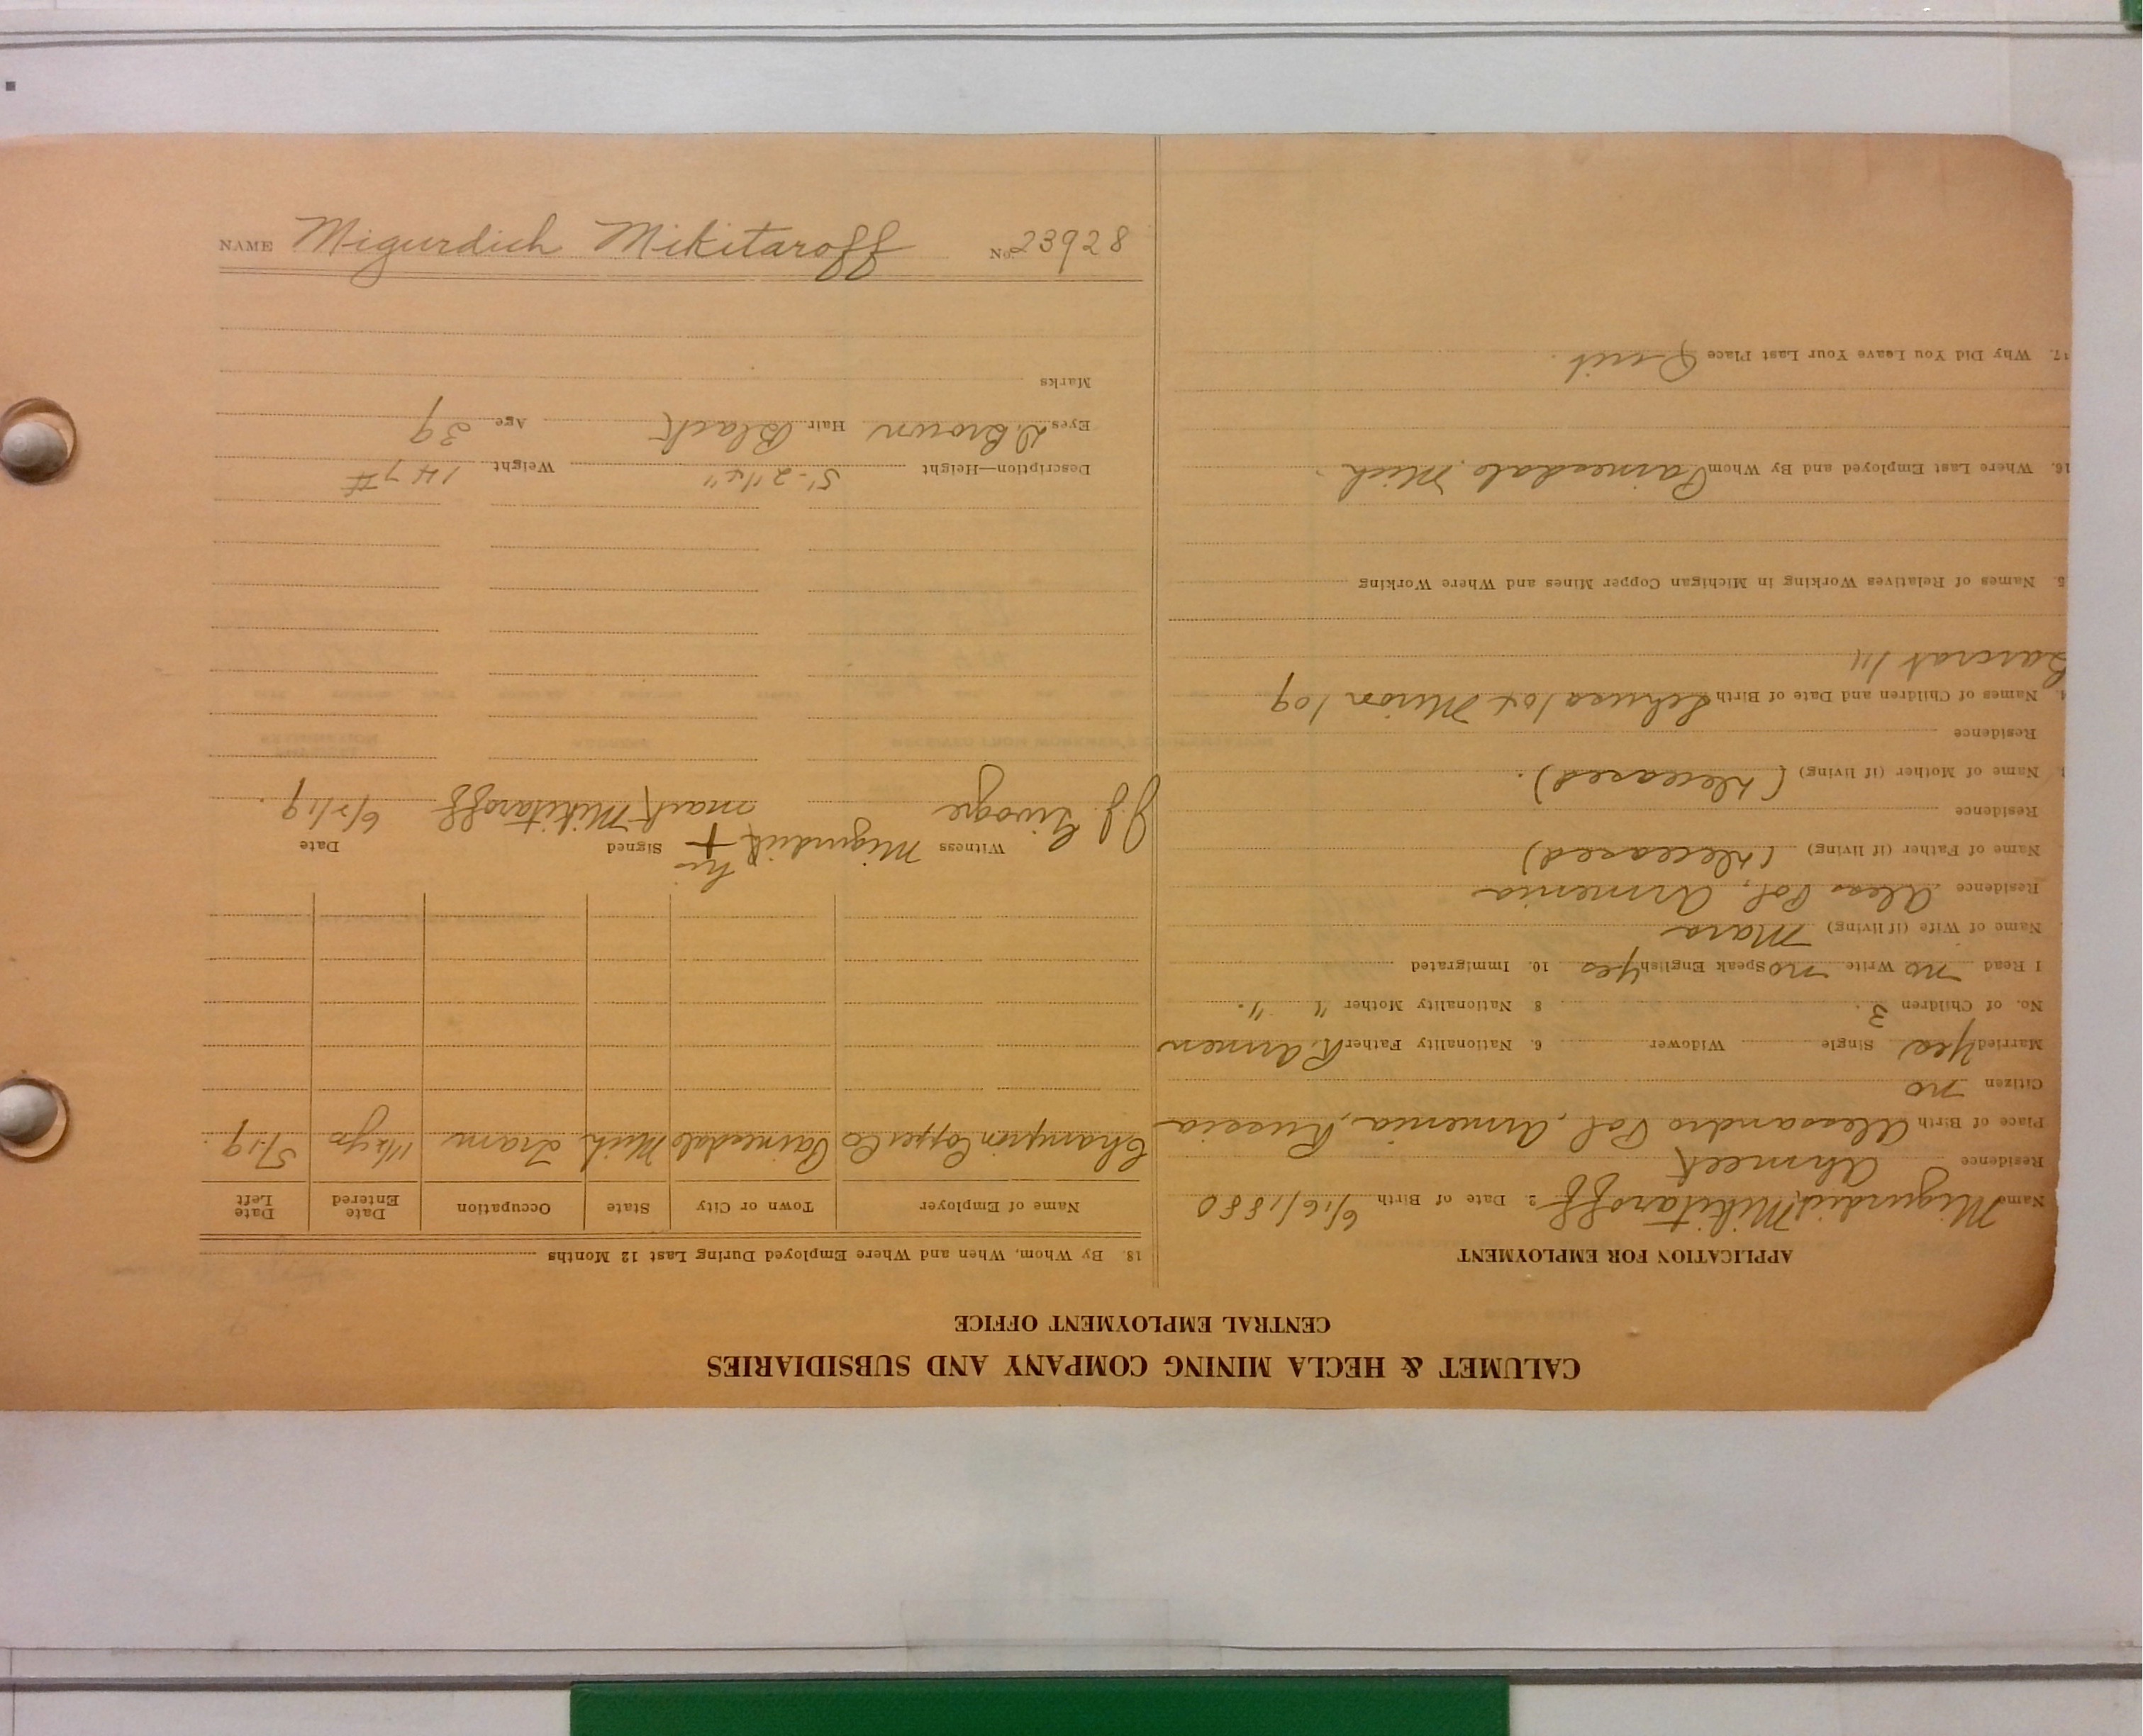 CALUMET & HECLA MINING COMPANY AND SUBSIDIARIES
CENTRAL EMPLOYMENT OFFICE
APPLICATION FOR EMPLOYMENT
Name Migurdich Mikitaroff 2. Date of Birth 6/16/1880
Residence Ahmeek
Place of Birth Alesandro Pol, Armenia, Russia
Citizen no
Married Yes Single Widower 6. Nationality Father R. Armen
No. of Children 3. 8 Nationality Mother " ".
I Read no Write no Speak English yes 10. Immigrated
Name of Wife (if living) Mara
Residence Alex Pol, Armenia
Name of Father (if living) (deceased)
Residence
Name of Mother (if living) (deceased).
Residence
Names of Children and Date of Birth
5. Names of Relatives Working in Michigan Copper Mines and Where Working
16. Where Last Employed and By Whom Painesdale Mich.
17. Why Did You Leave Your Last Place Quit.
18. By Whom, When and Where Employed During Last 12 Months
Name of Employer Town or City State Occupation Date Entered Date Left
Champion Copper Co Painesdale Mich Tram 1 1/2 yrs 5/19.
his
Witness Migurdich + Signed Date
J. J. mark Mikitaroff 6/2/19.
Description—Height 5'-2 1/4" Weight 147#
Eyes D. Brown Hair Black Age 39
Marks
NAME Migurdich Mikitaroff No. 23928